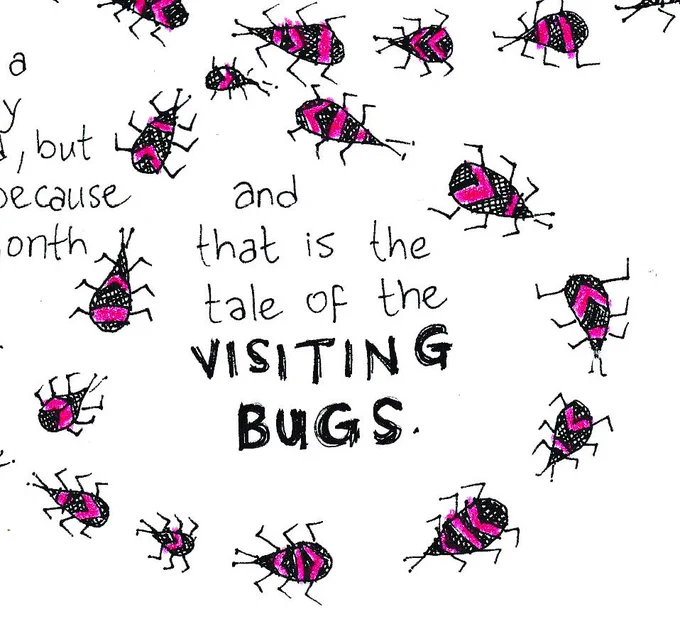 a
y
, but
because
onth
and
that is the
tale of the
VISITING
BUGS.